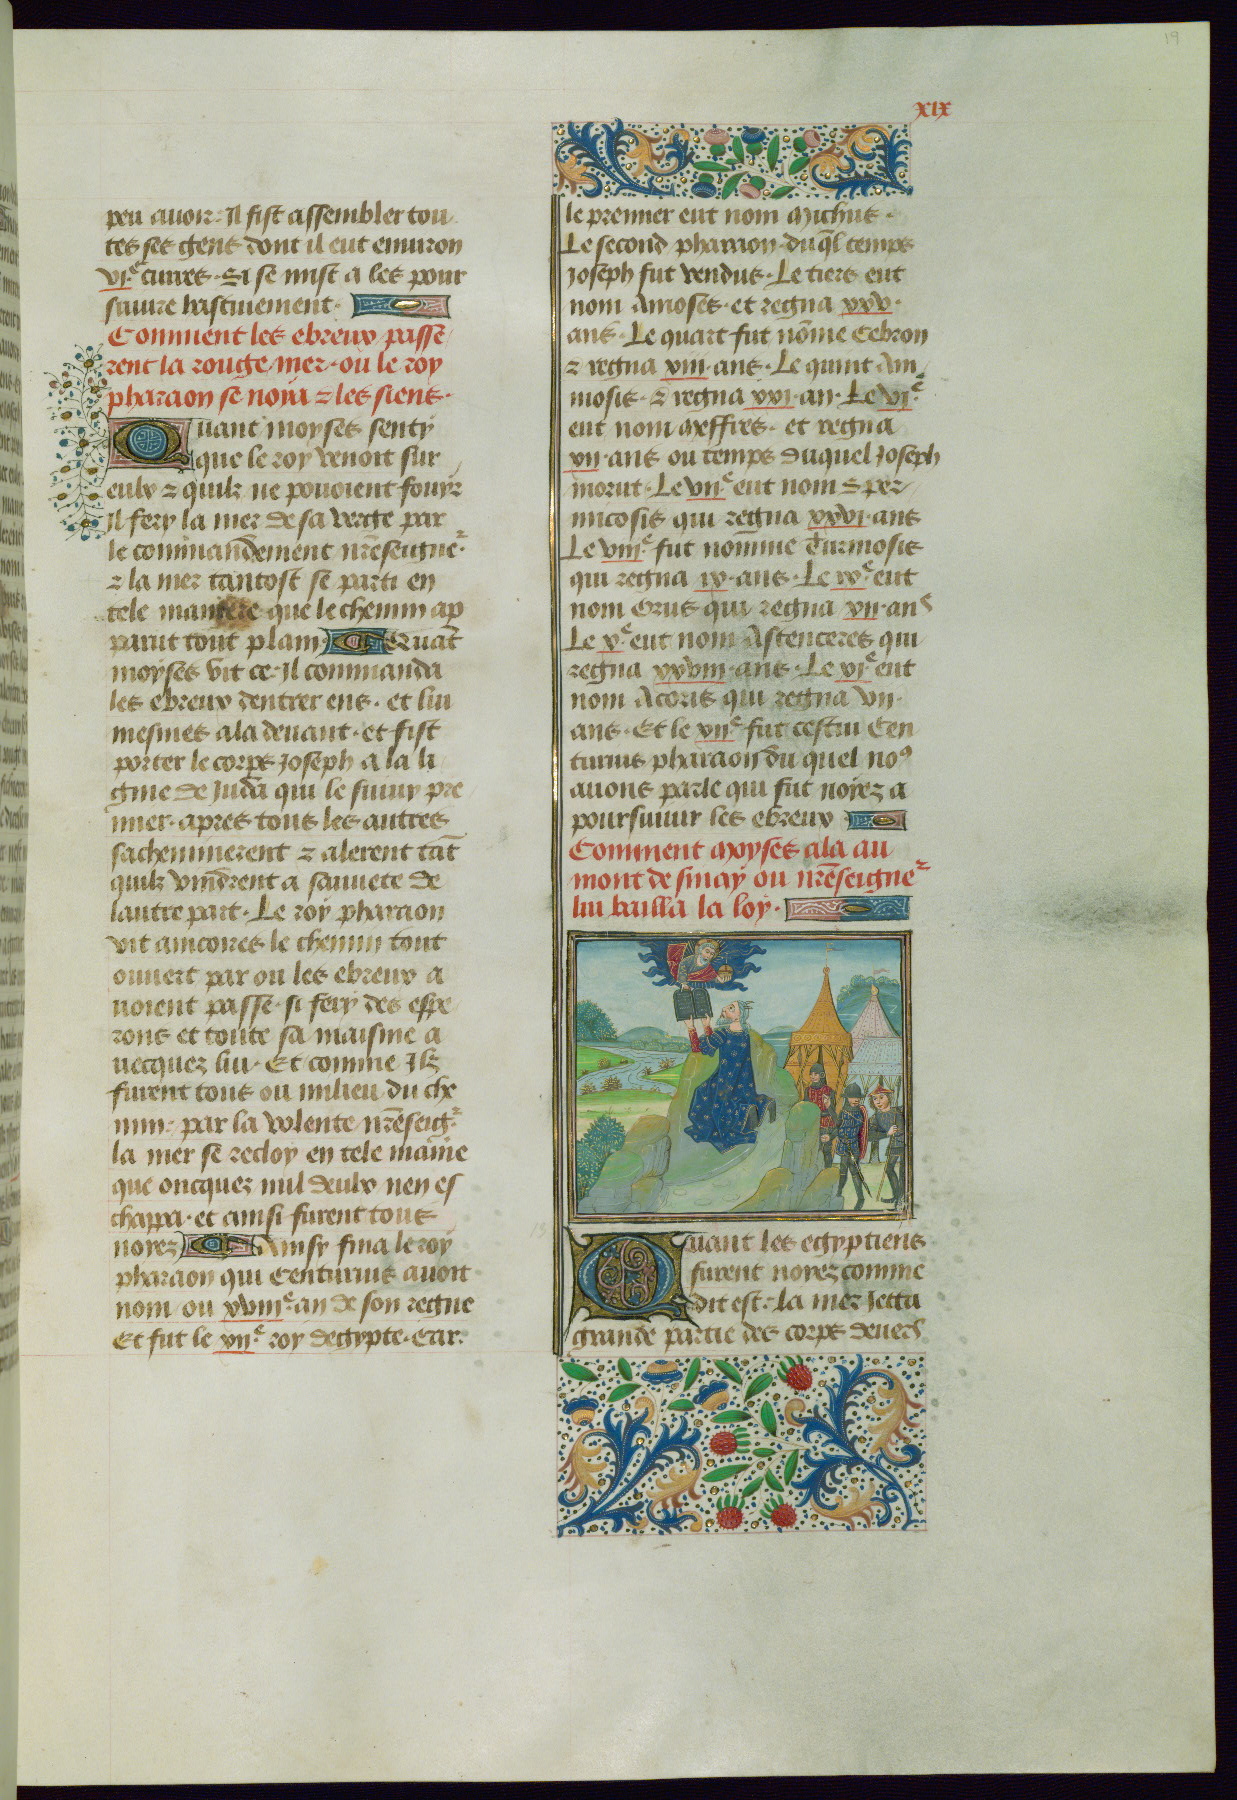 19
xix
peu auoir. Il fist assembler tou
tes ses gens dont il eut enuiron
vi.c curres. Si se mist a les pour
suiure hastiuement.
Comment les ebreux passe
rent la rouge mer. ou le roy
pharaon se noya ⁊ les siens.
Quant moyses senty
que le roy venoit sur
eulx ⁊ quilz ne pouoient fouyr
Il fery la mer de sa verge par
le commandement nr̄eseigne.r
⁊ la mer tantost se parti en
tele maniere que le chemin ap
parut tout plain. Quāt
moyses vit ce. Il commanda
les ebreux dentrer ens. et lui
mesmes ala deuant. et fist
porter le corps Joseph a la li
gnie de Juda qui le suiuy pre
mier. apres tous les autres
sacheminerent ⁊ alerent tāt
quilz vindrent a sauuete de
lautre part. Le roy pharaon
vit aincores le chemin tout
ouuert par ou les ebreux a
uoient passe. si fery des espe
rons et toute sa maisnie a
uecquez lui. Et comme Ilz
furent tous ou milieu du che
min. par la volente nr̄eseig.r
la mer se recloy en tele maīe
que oncquez nul deulx nen es
chappa. et ainsi furent tous
noyez Ainsy fina le roy
pharaon qui Centurius auoit
nom ou xviii.e an de son regne
Et fut le xii.e roy degypte. Car.
le premier eut nom Michus.
Le second pharaon. du q̄l temps
Joseph fut vendus. Le tiers eut
nom Amoses. et regna xxv.
ans. Le quart fut nōme Cebron
⁊ regna xiii. ans. Le quint Am
mosis. ⁊ regna xxi. an. Le vi.e
eut nom Meffres. et regna
xii. ans ou temps duquel Joseph
morut. Le vii.e eut nom Sper
micosis qui regna xxvi. ans
Le viii.e fut nomme Turmosis
qui regna ix. ans. Le ix.e eut
nom Orus qui regna xii. ans
Le x.e eut nom Astenceres qui
regna xxviii. ans. Le xi.e eut
nom Acoris qui regna vii.
ans. Et le xii.e fut cestui Cen
turius pharaon du quel noꝰ
auons parle qui fut noyez a
poursuiuir les ebreux
Comment Moyses ala au
mont de sinay ou nr̄eseigne.r
lui bailla la loy.
Quant les egyptiens
furent noyez comme
dit est. La mer Jetta
grande partie des corps deuers